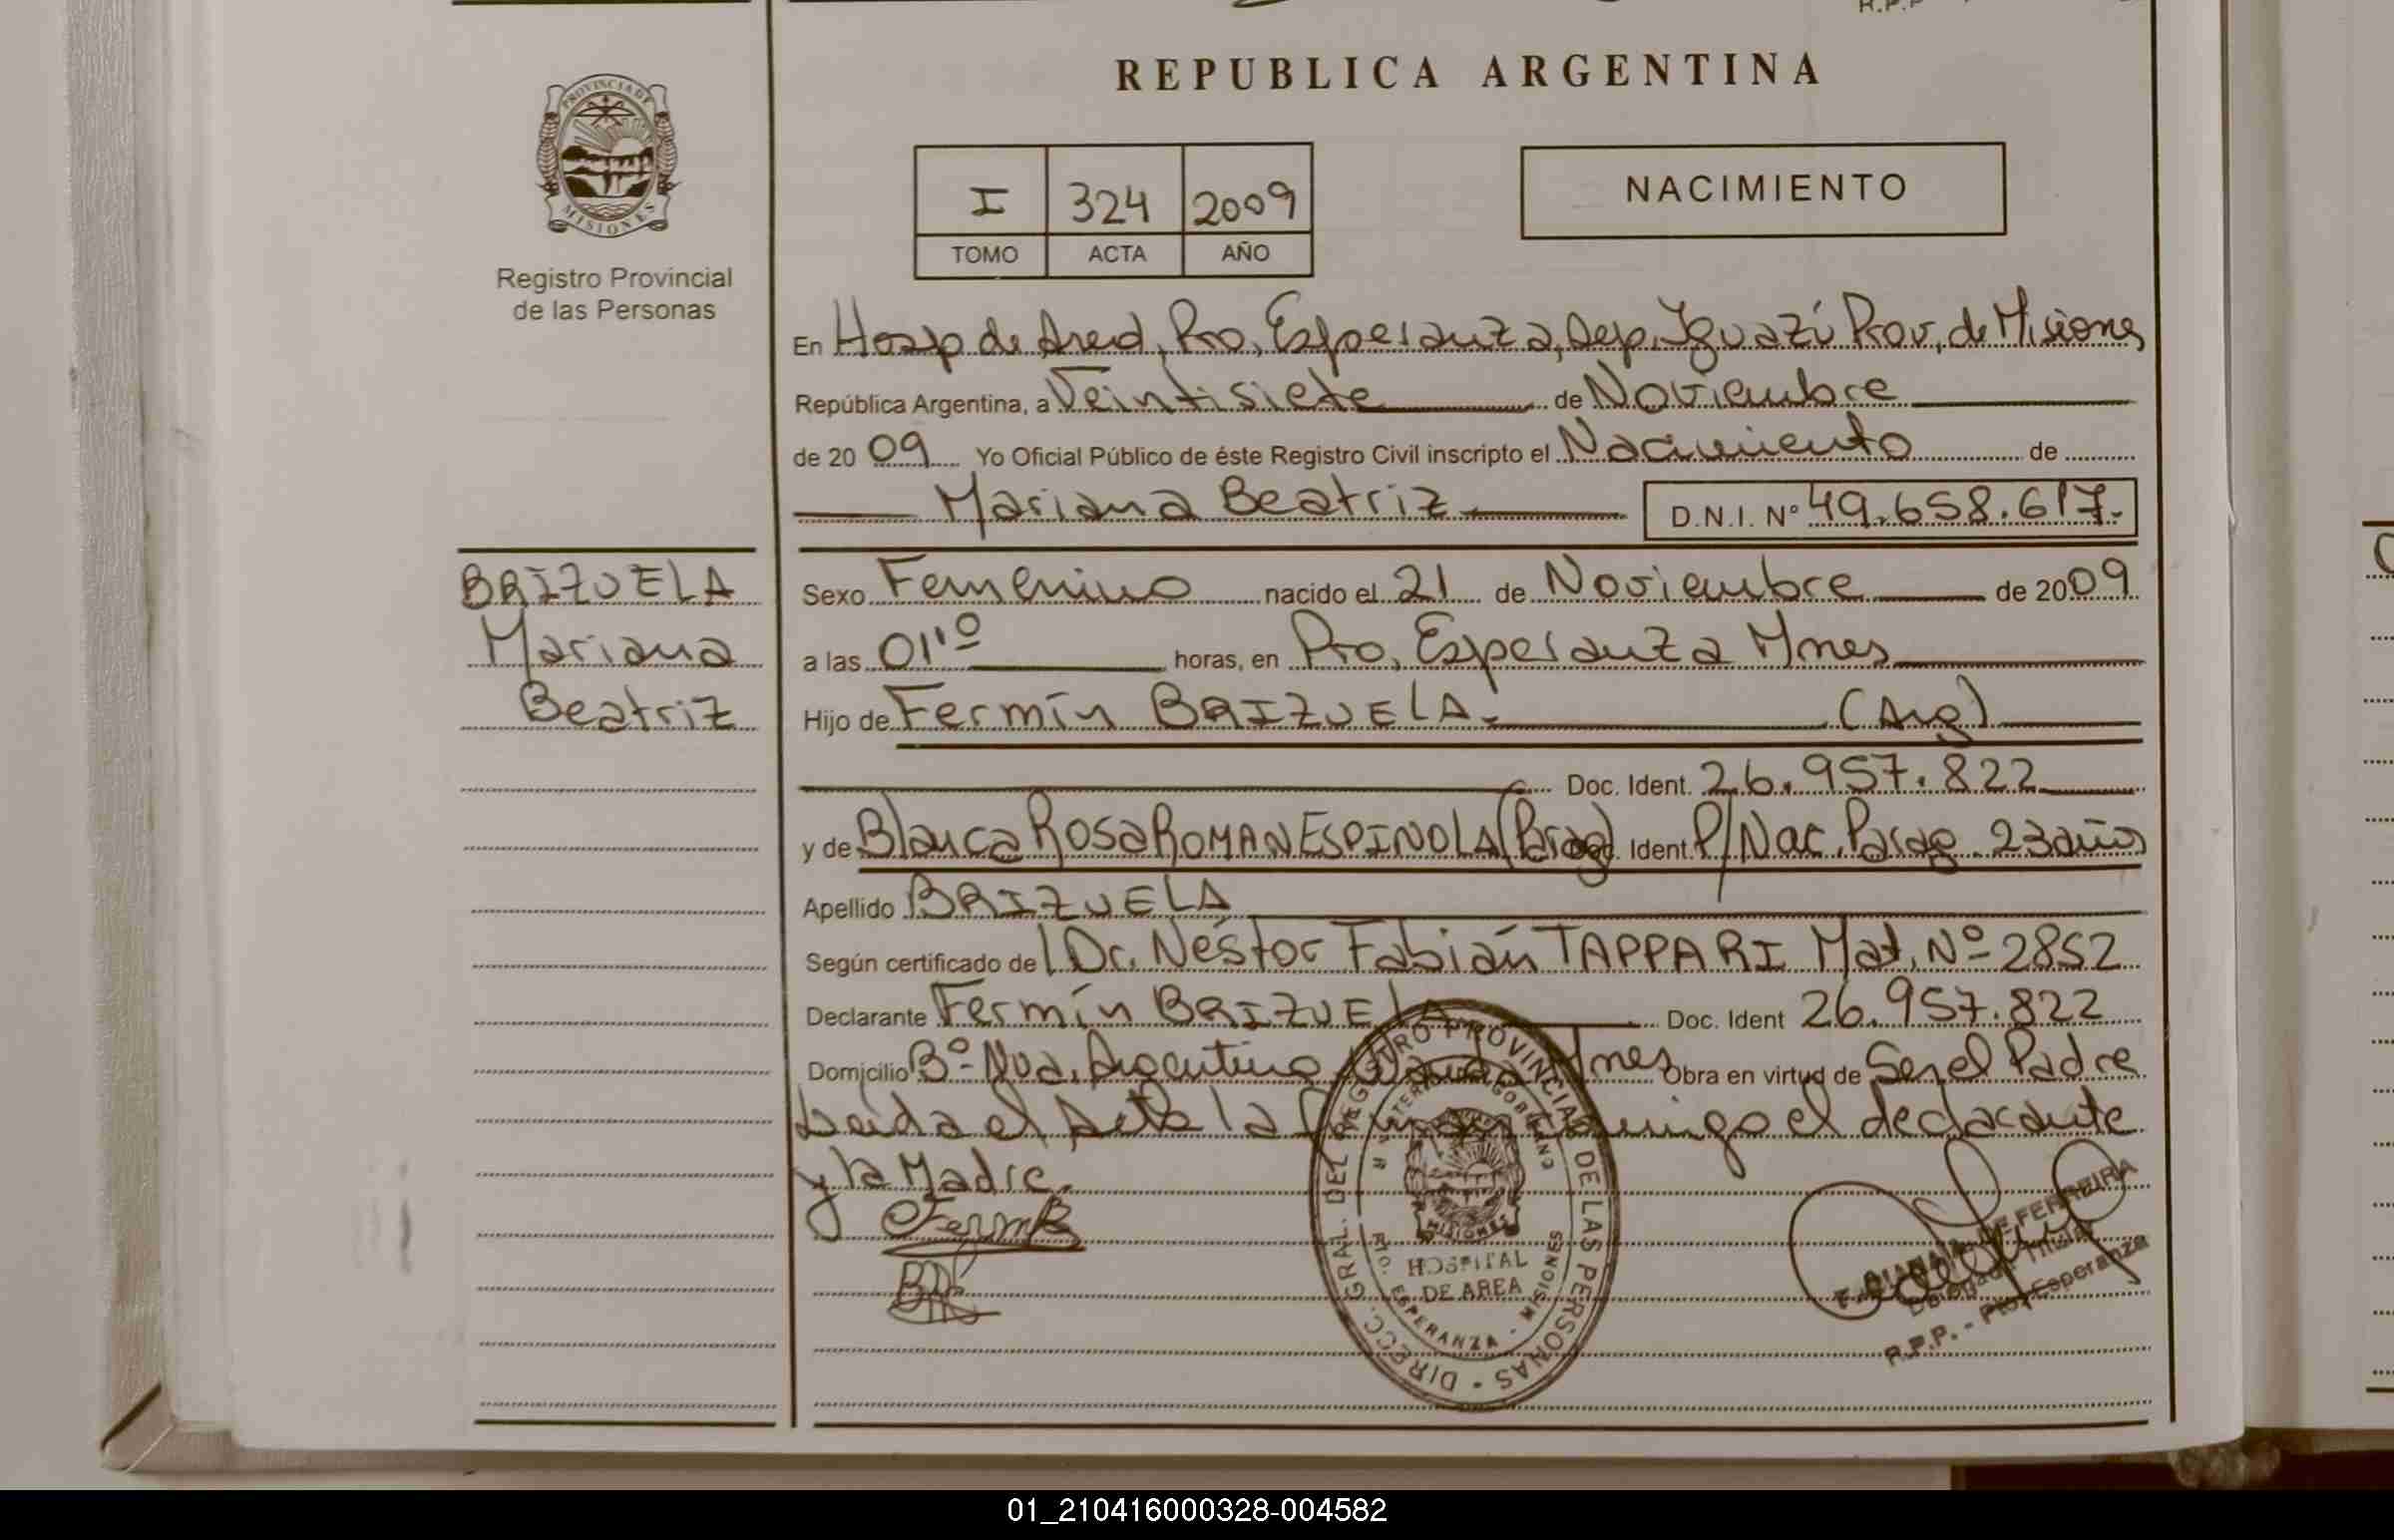 R.P.P
REPUBLICA ARGENTINA
PROVINCIA DE
MISIONES
Registro Provincial
de las Personas
I 324 2009
TOMO ACTA AÑO
NACIMIENTO
En Hosp de Area, Pto, Esperanza, Dep, Iguazú Prov, de Misiones
República Argentina, a Veintisiete de Noviembre
de 20 09 Yo Oficial Público de éste Registro Civil inscripto el Nacimiento de
Mariana Beatriz D.N.I. Nº 49.658.617.
BRIZUELA
Mariana
Beatriz
Sexo Femenino nacido el 21 de Noviembre de 2009
a las 01'º horas, en Pto, Esperanza Mnes
Hijo de Fermín BRIZUELA. (Arg)
Doc. Ident. 26.957.822
y de Blanca Rosa ROMAN ESPINOLA (Parag) Doc. Ident. P/Nac. Parag. 23 años
Apellido BRIZUELA
Según certificado del Dr. Néstor Fabián TAPPARI Mat, Nº 2852
Declarante Fermín BRIZUELA Doc. Ident 26.957.822
Domicilio Bº Nva. Argentina Wanda Mnes Obra en virtud de Ser el Padre
Leida el Acta la firman conmigo el declarante
y la Madre.
FermB
DIRECC. GRAL. DEL REGISTRO PROVINCIAL DE LAS PERSONAS
MISIONES
HOSPITAL
DE AREA
PTO. ESPERANZA - MISIONES
DE FERREIRA
Delegada Titular
R.P.P. - Pto. Esperanza
01_210416000328-004582